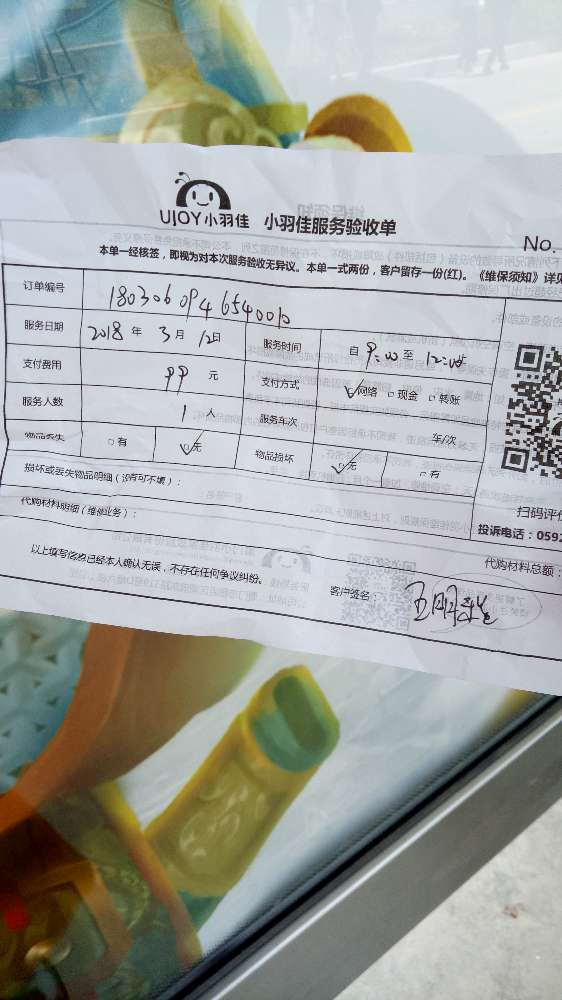 UJOY小羽佳 小羽佳服务验收单
No.
本单一经核签，即视为对本次服务验收无异议。本单一式两份，客户留存一份(红)。《维保须知》详见
订单编号
服务日期 2018 年 3 月 12 日 服务时间 自 9:00 至 12:00
支付费用 99 元 支付方式 ☑网络 □现金 □转账
服务人数 1 人 服务车次 车/次
物品丢失 □有 ☑无 物品损坏 ☑无 □有
损坏或丢失物品明细（没有可不填）：
扫码评价
代购材料明细（维修业务）：
投诉电话：0592
代购材料总额：
以上填写信息已经本人确认无误，不存在任何争议纠纷。 客户签名：